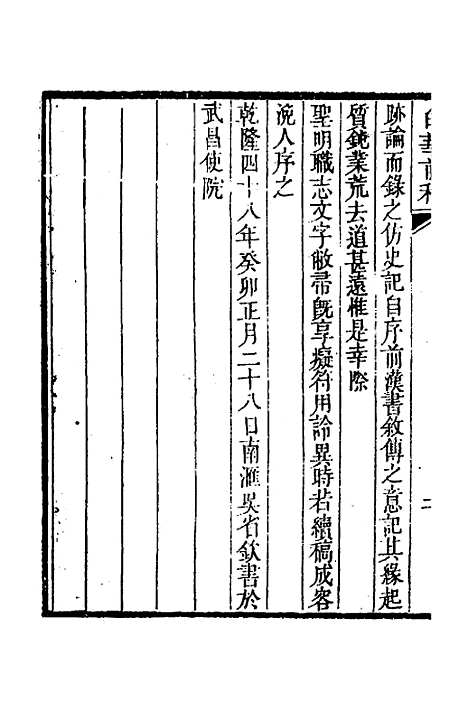 跡論而錄之仿史記自序前漢書敘傳之意記其緣起
質鈍業荒去道甚遠惟是幸際
聖明職志文字敝帚旣享癡符用詅異時若續稿成客
浼人序之
乾隆四十八年癸卯正月二十八日南滙吳省欽書於
武昌使院